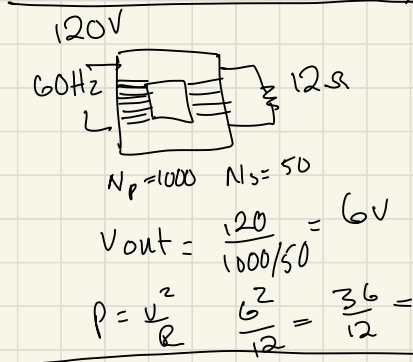 120V
60Hz
12Ω
Np=1000 Ns=50
Vout = 120 / 1000/50 = 6V
P = v²/R 6²/12 = 36/12 =